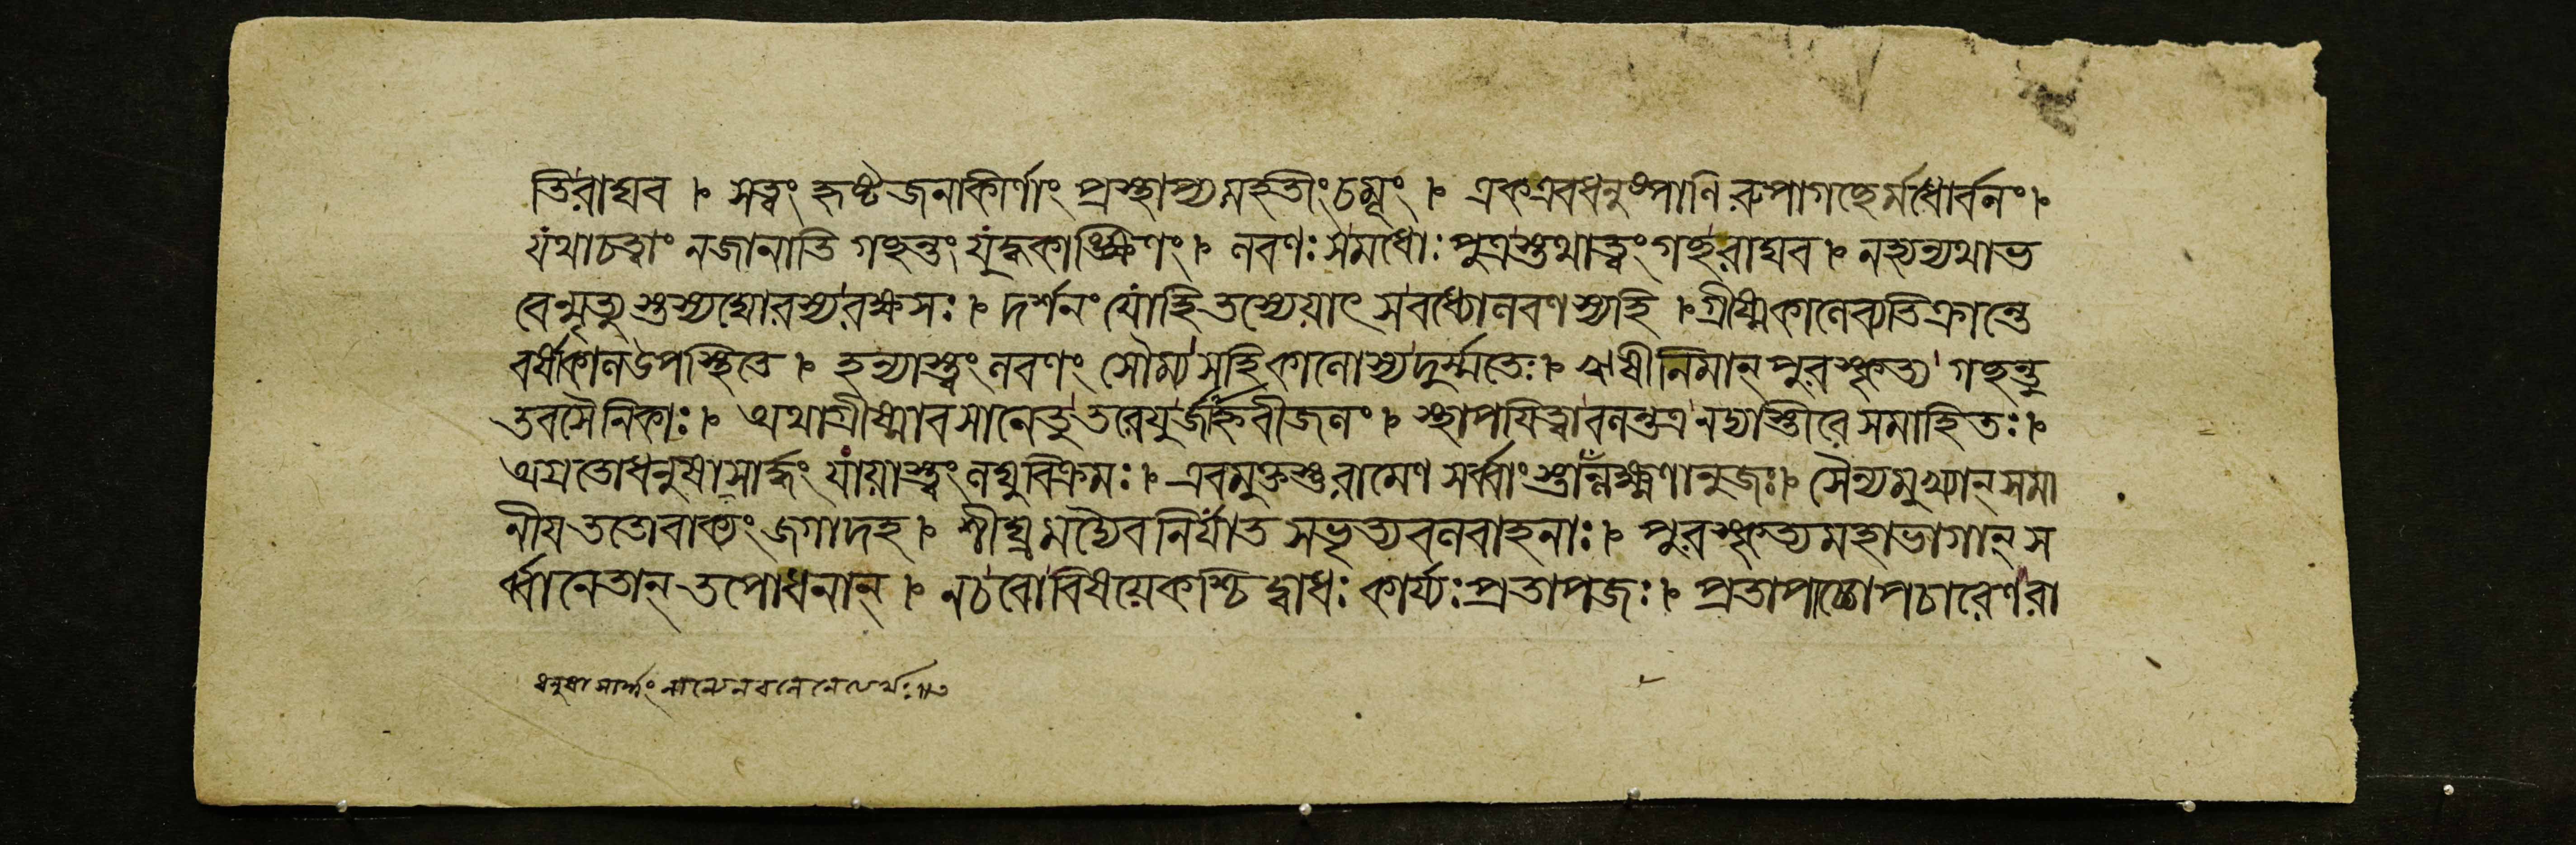 তিরাঘব । সত্বং হৃষ্টজনাকীর্ণাং প্রস্থাপ্যমহতীংচমূং । একএবধনুষ্পাণি রুপাগচ্ছের্মধোর্বনং ।
যথাচত্বাং নজানাতি গচ্ছন্তং যুদ্ধকাঙ্ক্ষিণং । লবণঃ সমধোঃ পুত্রস্তথাত্বংগচ্ছরাঘব । নহ্যন্যথাভ
বেন্মৃত্যুস্তস্যঘোরস্যরক্ষসঃ । দর্শনং যোহিতস্যেয়াৎ সবধ্যোলবণস্যহি । গ্রীষ্মকালেব্যতিক্রান্তে
বর্ষাকালউপস্থিতে । হন্যাস্ত্বংলবণং সৌম্যসহিকালোস্যদুর্ম্মতেঃ । ঋষীনিমান্ পুরস্কৃত্য গচ্ছন্তু
তবসৈনিকাঃ । অথাগ্রীষ্মাবসানেতু তরেযুর্জাহ্নবীজলং । স্থাপয়িত্বাবলন্তত্র নদ্যাস্তীরে সমাহিতঃ ।
অগ্রতোধনুষাসার্দ্ধং যায়াস্ত্বংলঘুবিক্রমঃ । এবমুক্তস্তুরামেণ সর্ব্বাংস্তাল্লঁক্ষ্মণানুজঃ । সৈন্যমুখ্যান্ সমা
নীয় ততোবাক্যং জগাদহ । শীঘ্রমদ্যৈবনির্যাত সভৃত্যবলবাহনাঃ । পুরস্কৃত্যমহাভাগান্ স
র্ব্বানেতান্ তপোধনান্ । নচবোবিষয়েকশ্চি দ্বাধঃ কার্য্যঃপ্রতাপজঃ । প্রতাপাচ্চোপচারেণরা
ধনুষা সার্দ্ধং নান্যেন বলেনেত্যর্থঃ ॥৬